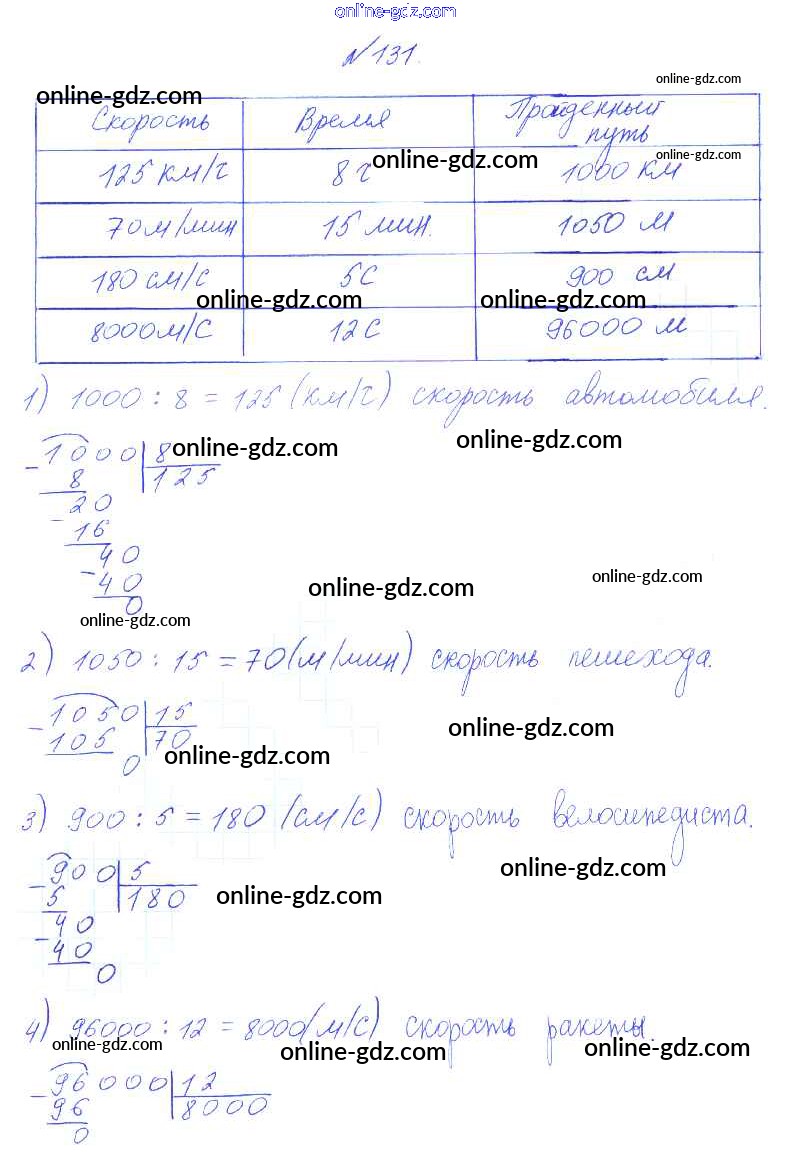 online-gdz.com
№131.
online-gdz.com
online-gdz.com
Скорость Время Пройденный путь
online-gdz.com online-gdz.com
125 км/ч 8 ч 1000 км
70 м/мин 15 мин. 1050 м
180 см/с 5 с 900 см
online-gdz.com online-gdz.com
8000 м/с 12 с 96000 м
1) 1000 : 8 = 125 (км/ч) скорость автомобиля.
online-gdz.com online-gdz.com
- 1000 8
8 125
20
- 16
40
- 40
0
online-gdz.com online-gdz.com
online-gdz.com
2) 1050 : 15 = 70 (м/мин) скорость пешехода.
- 1050 15
105 70
0
online-gdz.com online-gdz.com
3) 900 : 5 = 180 (см/с) скорость велосипедиста.
- 900 5
5 180
40
- 40
0
online-gdz.com online-gdz.com
4) 96000 : 12 = 8000 (м/с) скорость ракеты.
online-gdz.com online-gdz.com online-gdz.com
- 96000 12
96 8000
0